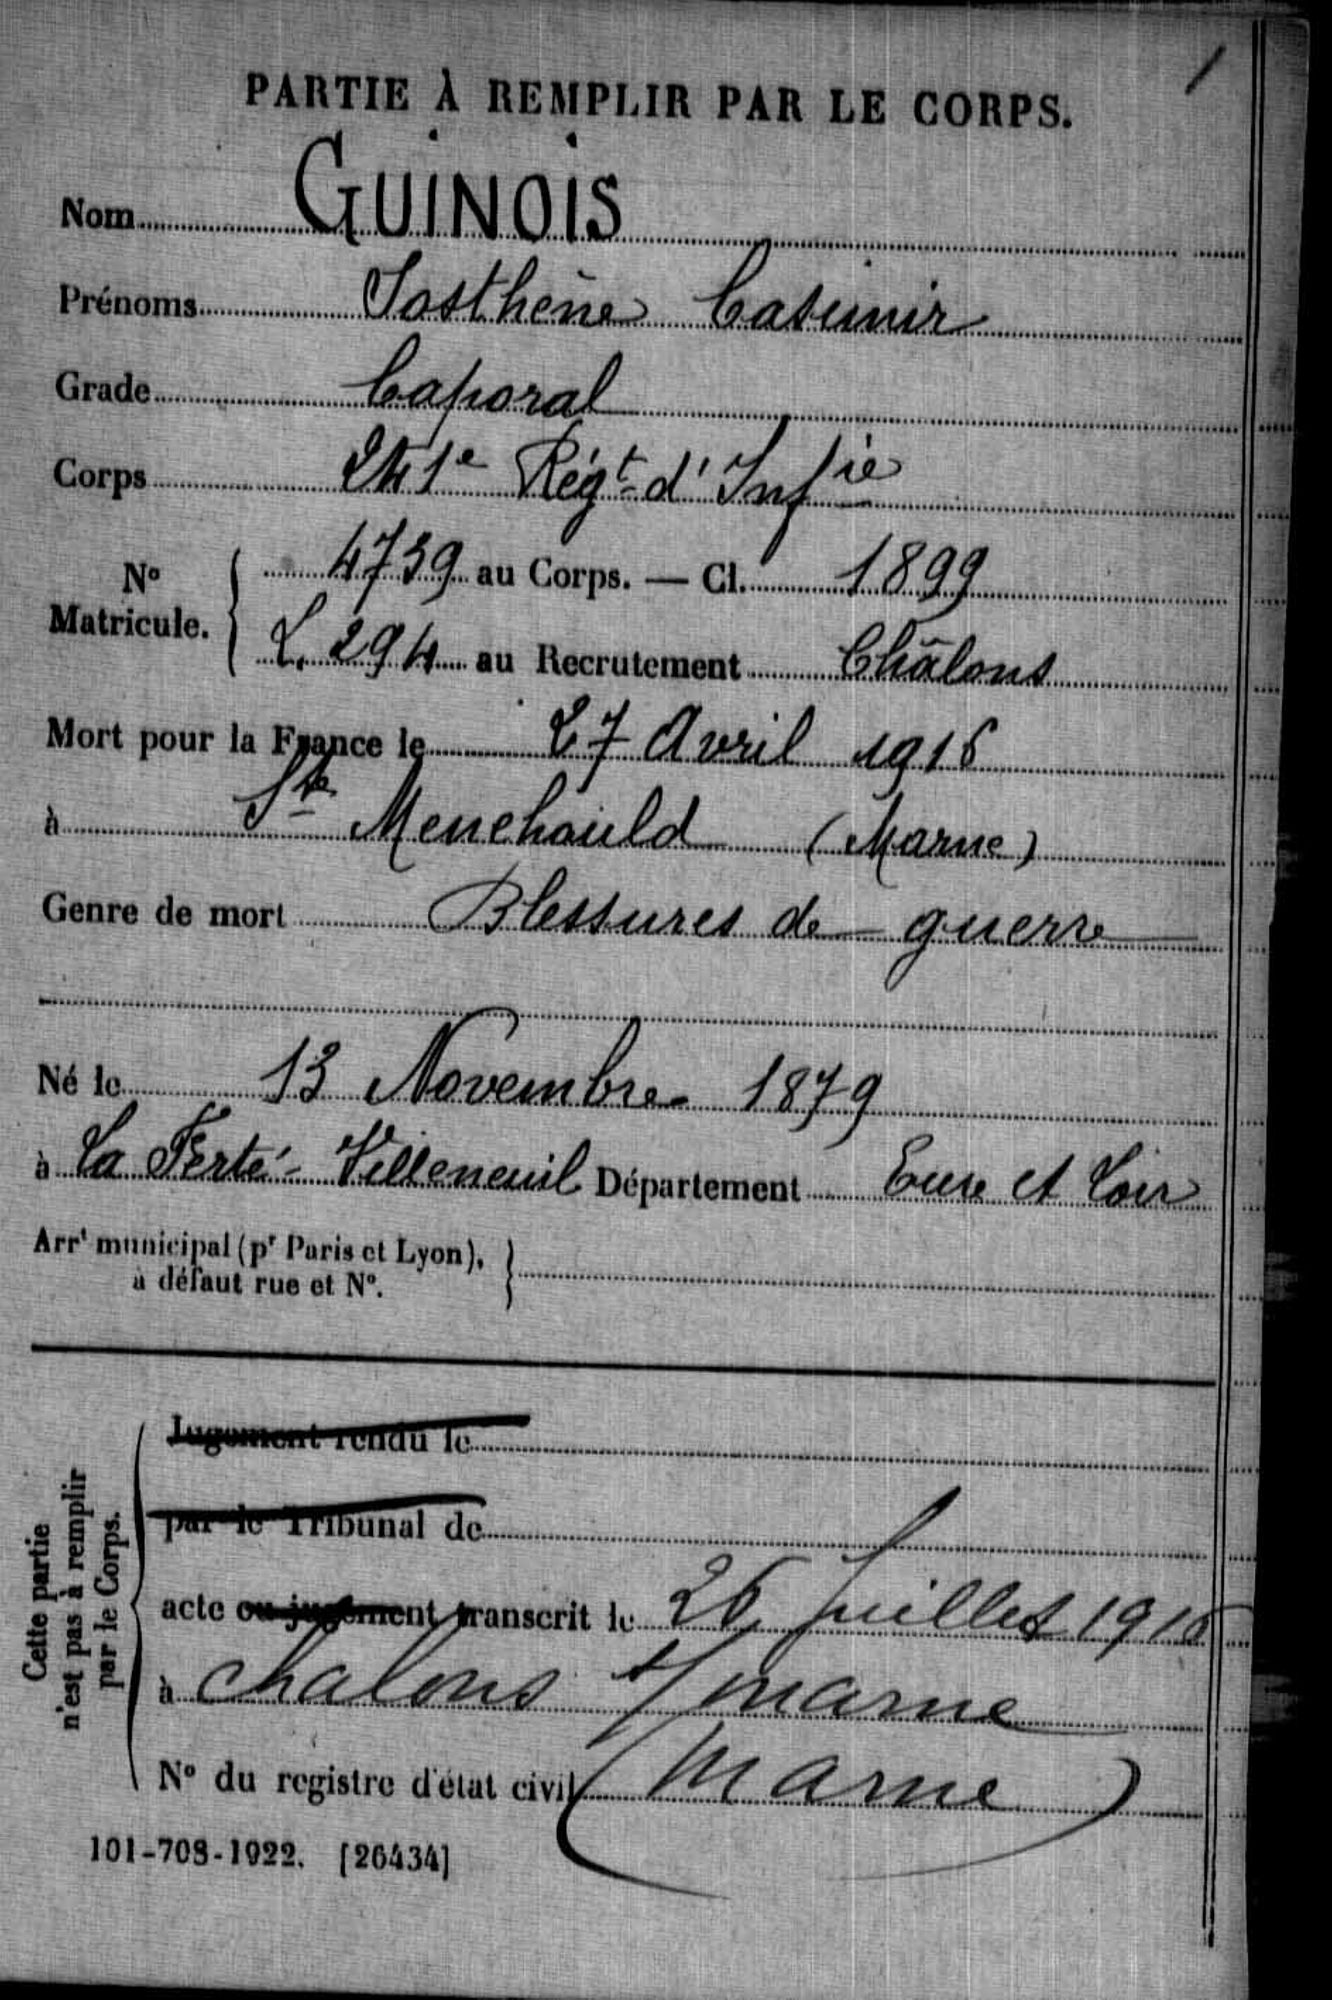 1
PARTIE À REMPLIR PAR LE CORPS.
Nom GUINOIS
Prénoms Sosthène Casimir
Grade Caporal
Corps 241e Régt d'Infie
No Matricule. { 4739 au Corps. — Cl. 1899
L. 294 au Recrutement Châlons
Mort pour la France le 27 Avril 1916
à Ste Menehould (Marne)
Genre de mort Blessures de guerre
Né le 13 Novembre 1879
à La Ferté-Villeneuil Département Eure et Loir
Arrt municipal (pr Paris et Lyon),
à défaut rue et No. }
Cette partie
n'est pas à remplir
par le Corps.
Jugement rendu le
par le Tribunal de
acte ou jugement transcrit le 26 Juillet 1916
à Chalons s/marne
No du registre d'état civil (Marne)
101-708-1922. [26434]